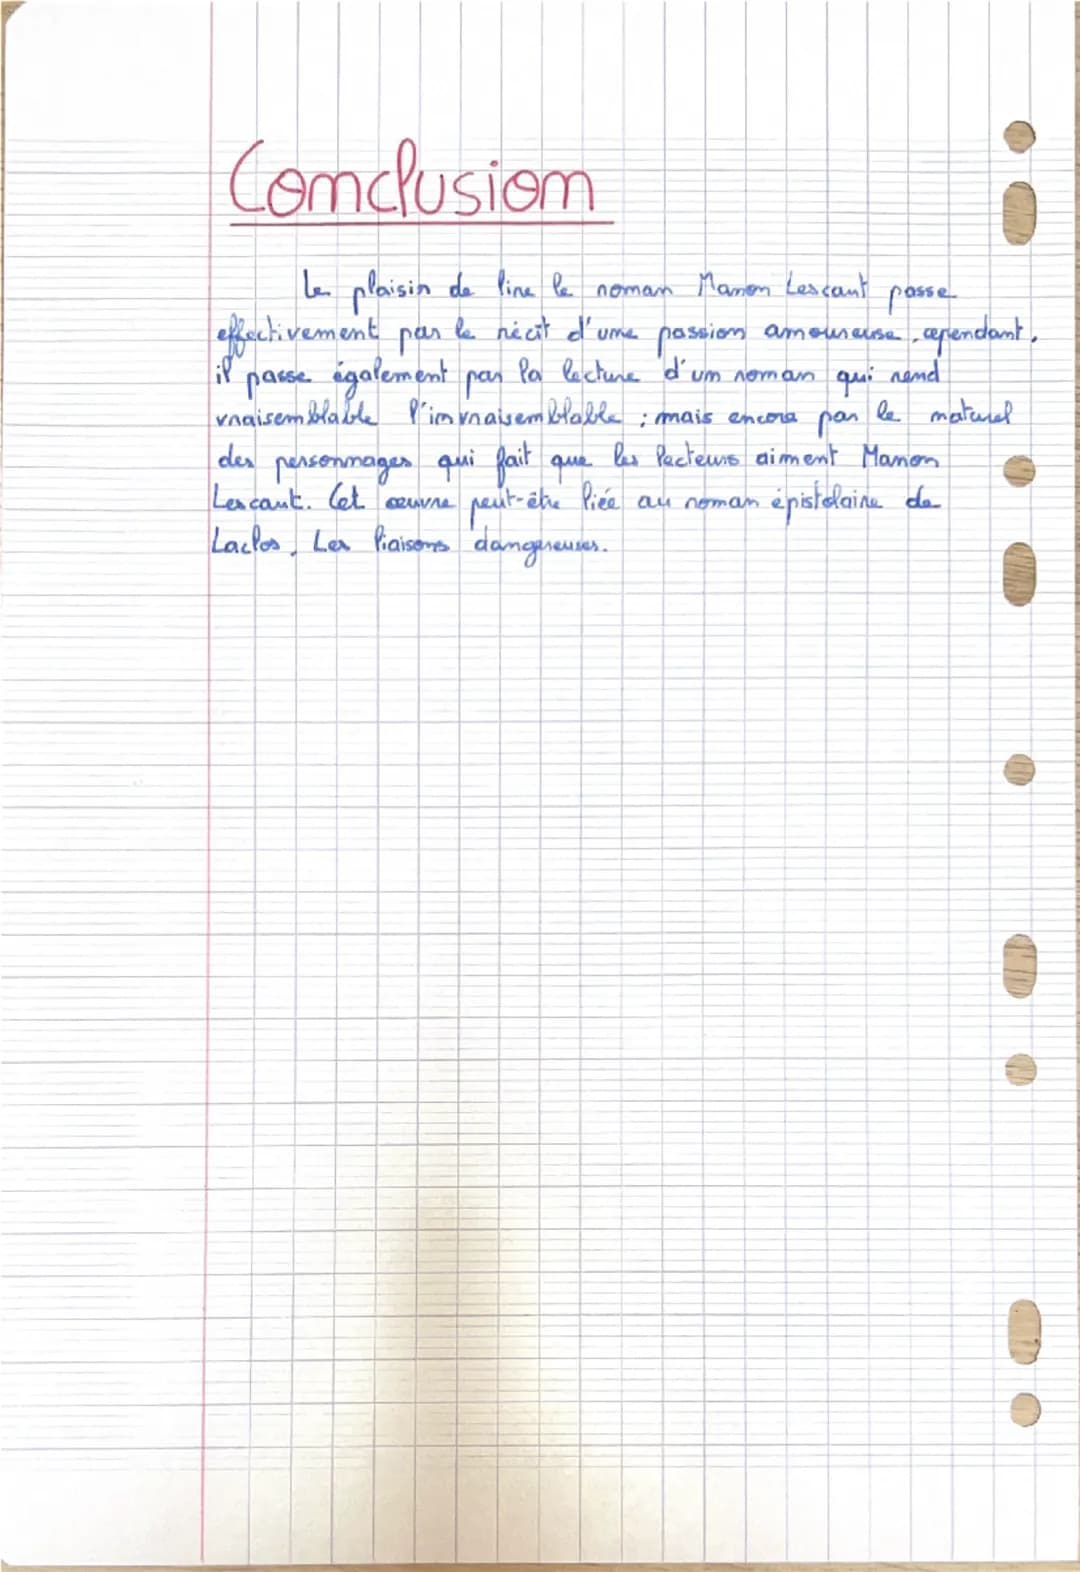 Conclusion
Le plaisir de lire le roman Manon Lescaut passe
effectivement par le récit d'une passion amoureuse, cependant,
il passe également par la lecture d'un roman qui rend
vraisemblable l'invraisemblable ; mais encore par le naturel
des personnages qui fait que les lecteurs aiment Manon
Lescaut. Cet œuvre peut-être liée au roman épistolaire de
Laclos, Les liaisons dangereuses.